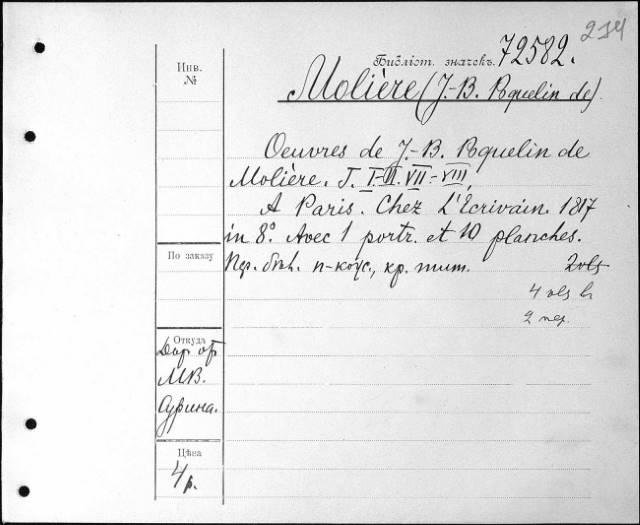 234
Библіот. значекъ. 72582.
Инв.
№
Molière (J.-B. Pquelin de)
Oeuvres de J.-B. Pquelin de
Molière. T. I-II. VII-VIII,
A Paris. Chez L'Ecrivain. 1817
in 8°. Avec 1 portr. et 10 planches.
По заказу
Пер. п-кож., кр. тит. 2 vols
4 vols
2 пер.
Откуда
Дар от
М.В.
Сурина.
Цѣна
4 р.